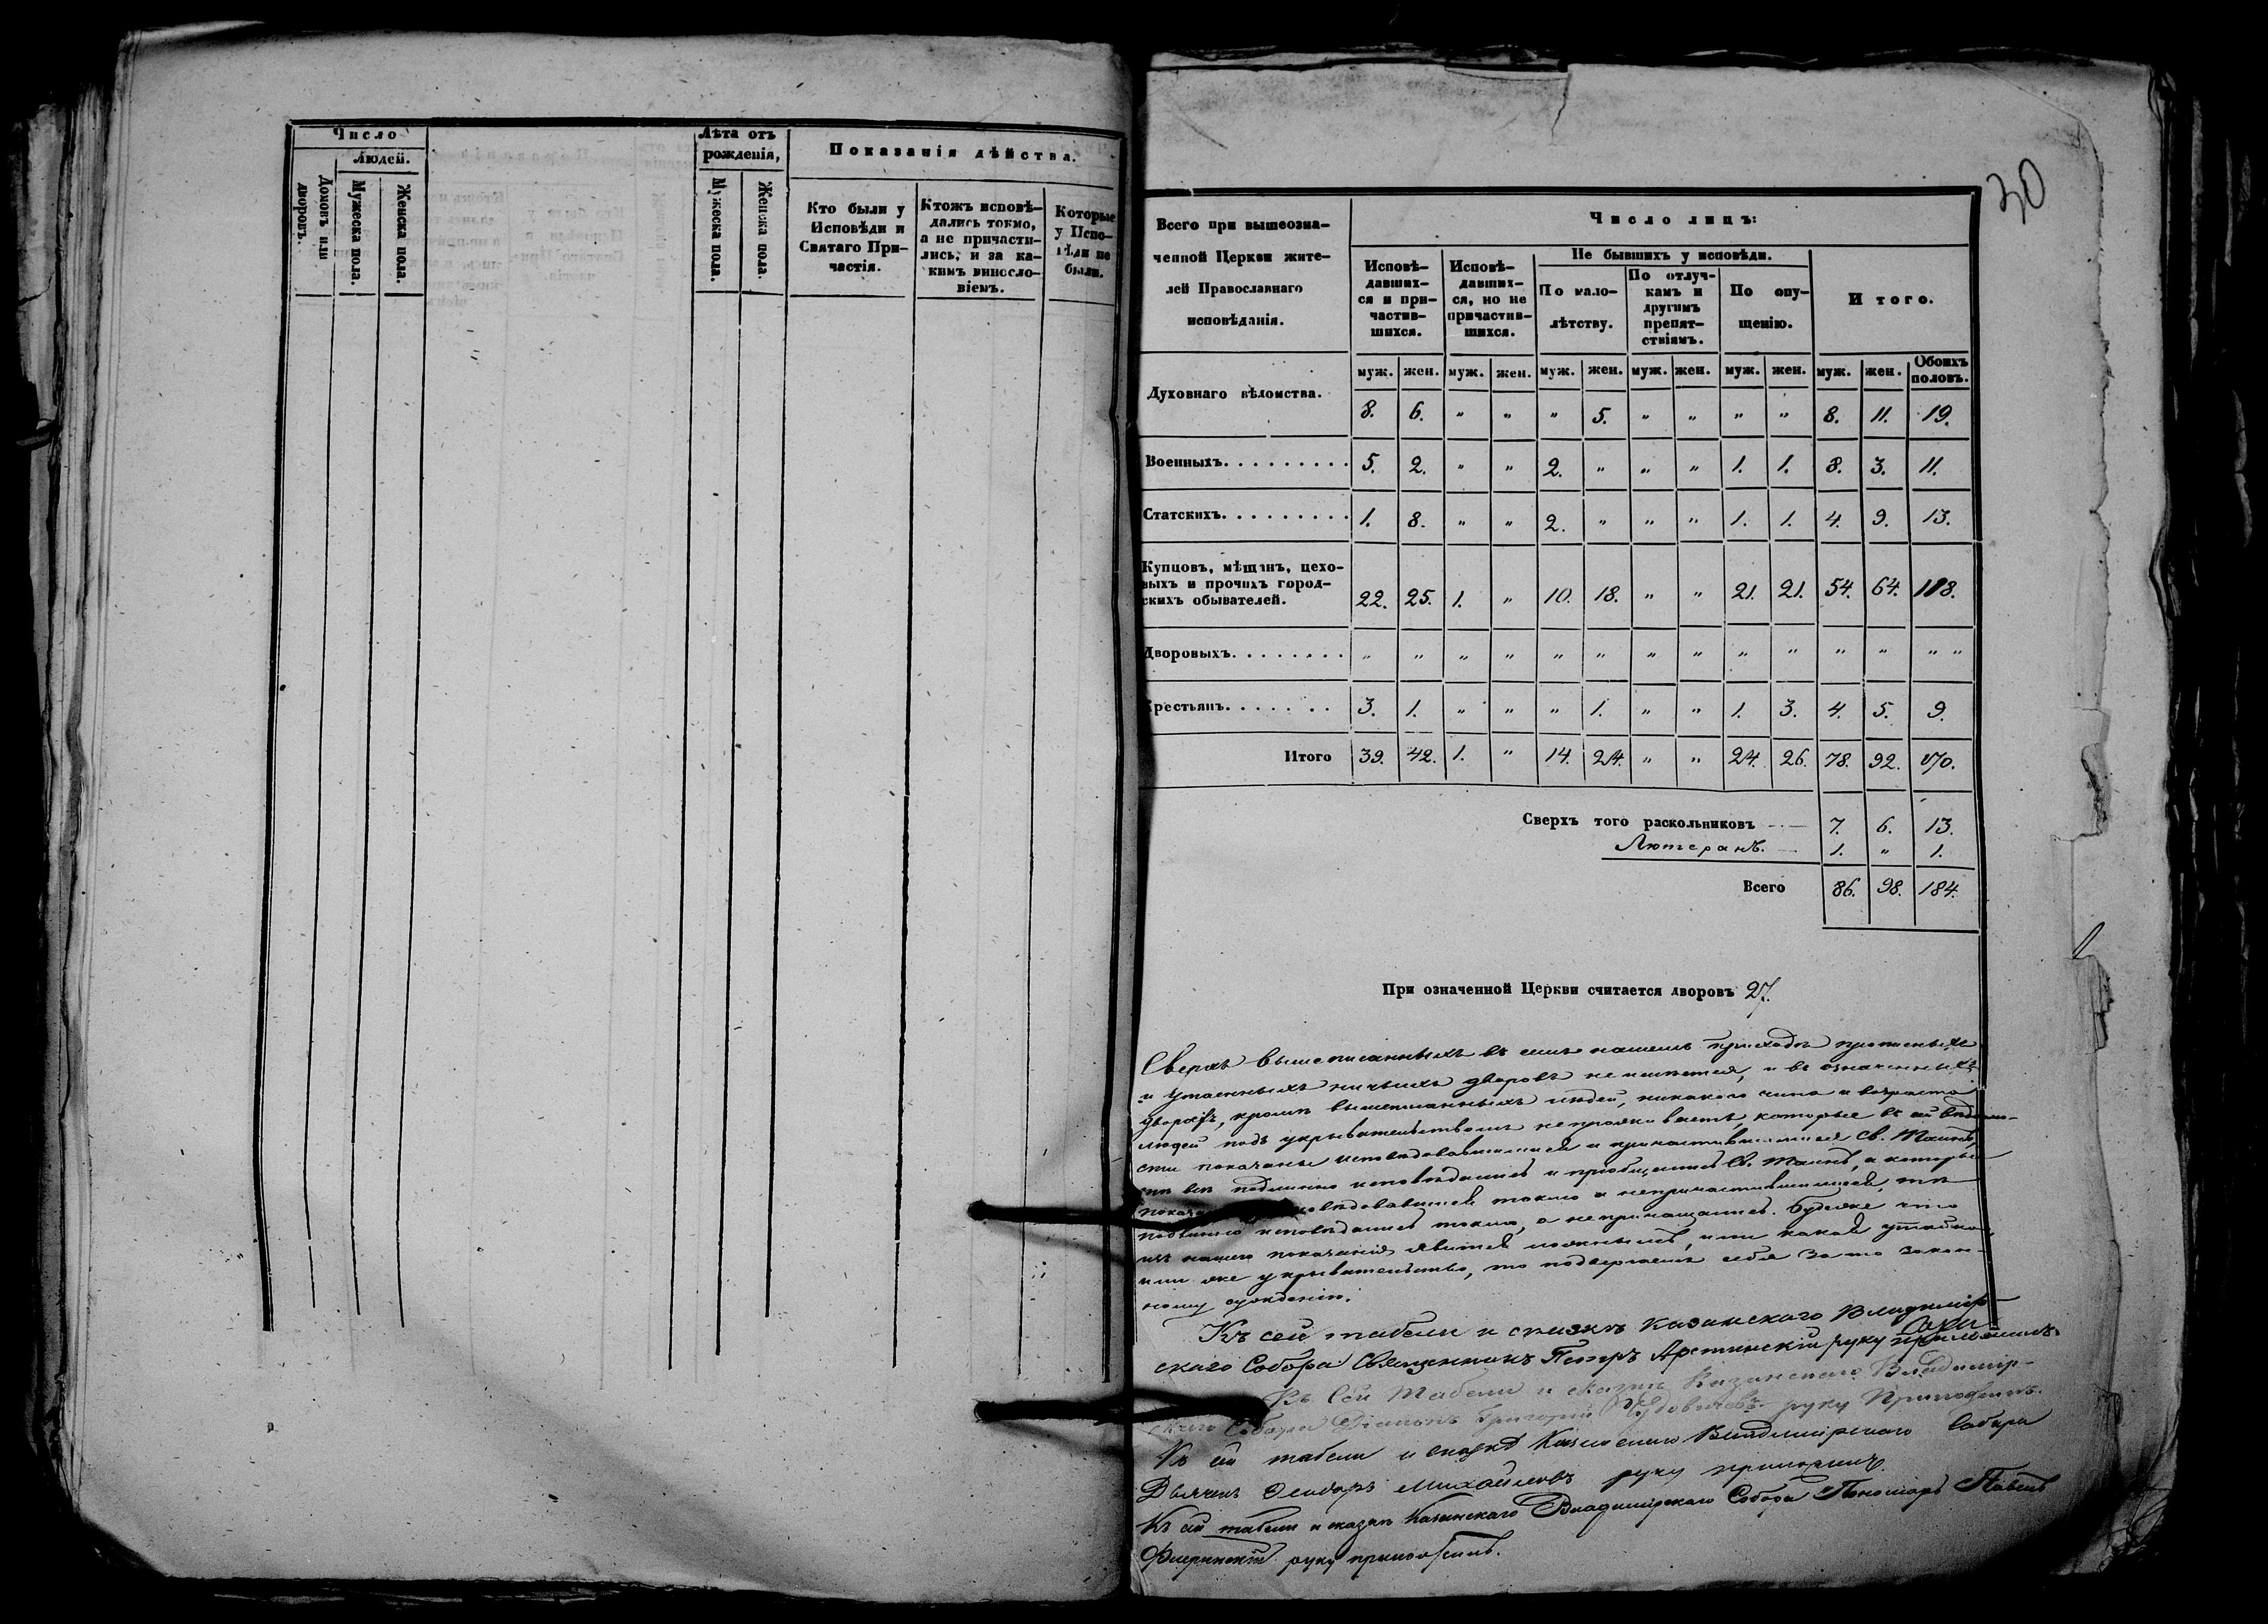 Число
Людей.
Домовъ или дворовъ.
Мужеска пола.
Женска пола.
Лѣта отъ
рожденія,
Мужеска пола.
Женска пола.
Показанія дѣйства.
Кто были у
Исповѣди и
Святаго При-
частія.
Ктожъ исповѣ-
дались токмо,
а не причасти-
лись, и за ка-
кимъ винословіемъ.
Которые
у Испо-
вѣди не
были.
30
Всего при вышеозна-
ченной Церкви жите-
лей Православнаго
исповѣданія.
Число лицъ:
Исповѣ-
давших-
ся и при-
частив-
шихся.
Исповѣ-
давших-
ся, но не
причастив-
шихся.
Не бывшихъ у исповѣди.
По мало-
лѣтству.
По отлуч-
камъ и
другимъ
препят-
ствіямъ.
По опу-
щенію.
И того.
муж. жен. муж. жен. муж. жен. муж. жен. муж. жен. муж. жен. Обоихъ половъ.
Духовнаго вѣдомства. 8. 6. " " " 5. " " " " 8. 11. 19.
Военныхъ. . . . . . . . . 5. 2. " " 2. " " " 1. 1. 8. 3. 11.
Статскихъ. . . . . . . . . 1. 8. " " 2. " " " 1. 1. 4. 9. 13.
Купцовъ, мѣщанъ, цехо-
выхъ и прочихъ город-
скихъ обывателей. 22. 25. 1. " 10. 18. " " 21. 21. 54. 64. 118.
Дворовыхъ. . . . . . . . " " " " " " " " " " " " " "
Крестьянъ. . . . . . . 3. 1. " " " 1. " " 1. 3. 4. 5. 9.
Итого 39. 42. 1. " 14. 24. " " 24. 26. 78. 92. 170.
Сверхъ того раскольниковъ 7. 6. 13.
Лютеранъ. 1. " 1.
Всего 86. 98. 184.
При означенной Церкви считается дворовъ 27.
Сверхъ вышеписанныхъ въ семъ нашемъ приходѣ прописныхъ
и утаенныхъ ничьихъ дворовъ не имѣется, и въ означенныхъ
дворахъ, кромѣ вышеписанныхъ людей, никакого чина и возраста
людей подъ укрывательствомъ не проживаетъ которые въ сей вѣдомо-
сти показаны исповѣдовавшимися и причастившимися Св. Таинъ,
тѣ всѣ подлинно исповѣдались и пріобщались Св. Таинъ, а которые
токмо и непричастившимися, тѣ
подлинно исповѣдались токмо, а не причащались. Будеже что
изъ нашего показанія явится ложнымъ, или какая утайка,
или же укрывательство, то подвергаемъ себя за то закон-
ному сужденію.
Къ сей табели и сказкѣ Казанскаго Владимір-
скаго Собора Священникъ Петръ руку приложилъ
Къ сей табели и сказкѣ Казанскаго Владимір-
скаго Собора Діаконъ Григорій руку приложилъ.
Къ сей табели и сказкѣ Казанскаго Владимірскаго Собора
Дьячекъ Ѳеодоръ Михайловъ руку приложилъ.
Къ сей табели и сказкѣ Казанскаго Владимірскаго Собора Пономарь Павелъ
руку приложилъ.